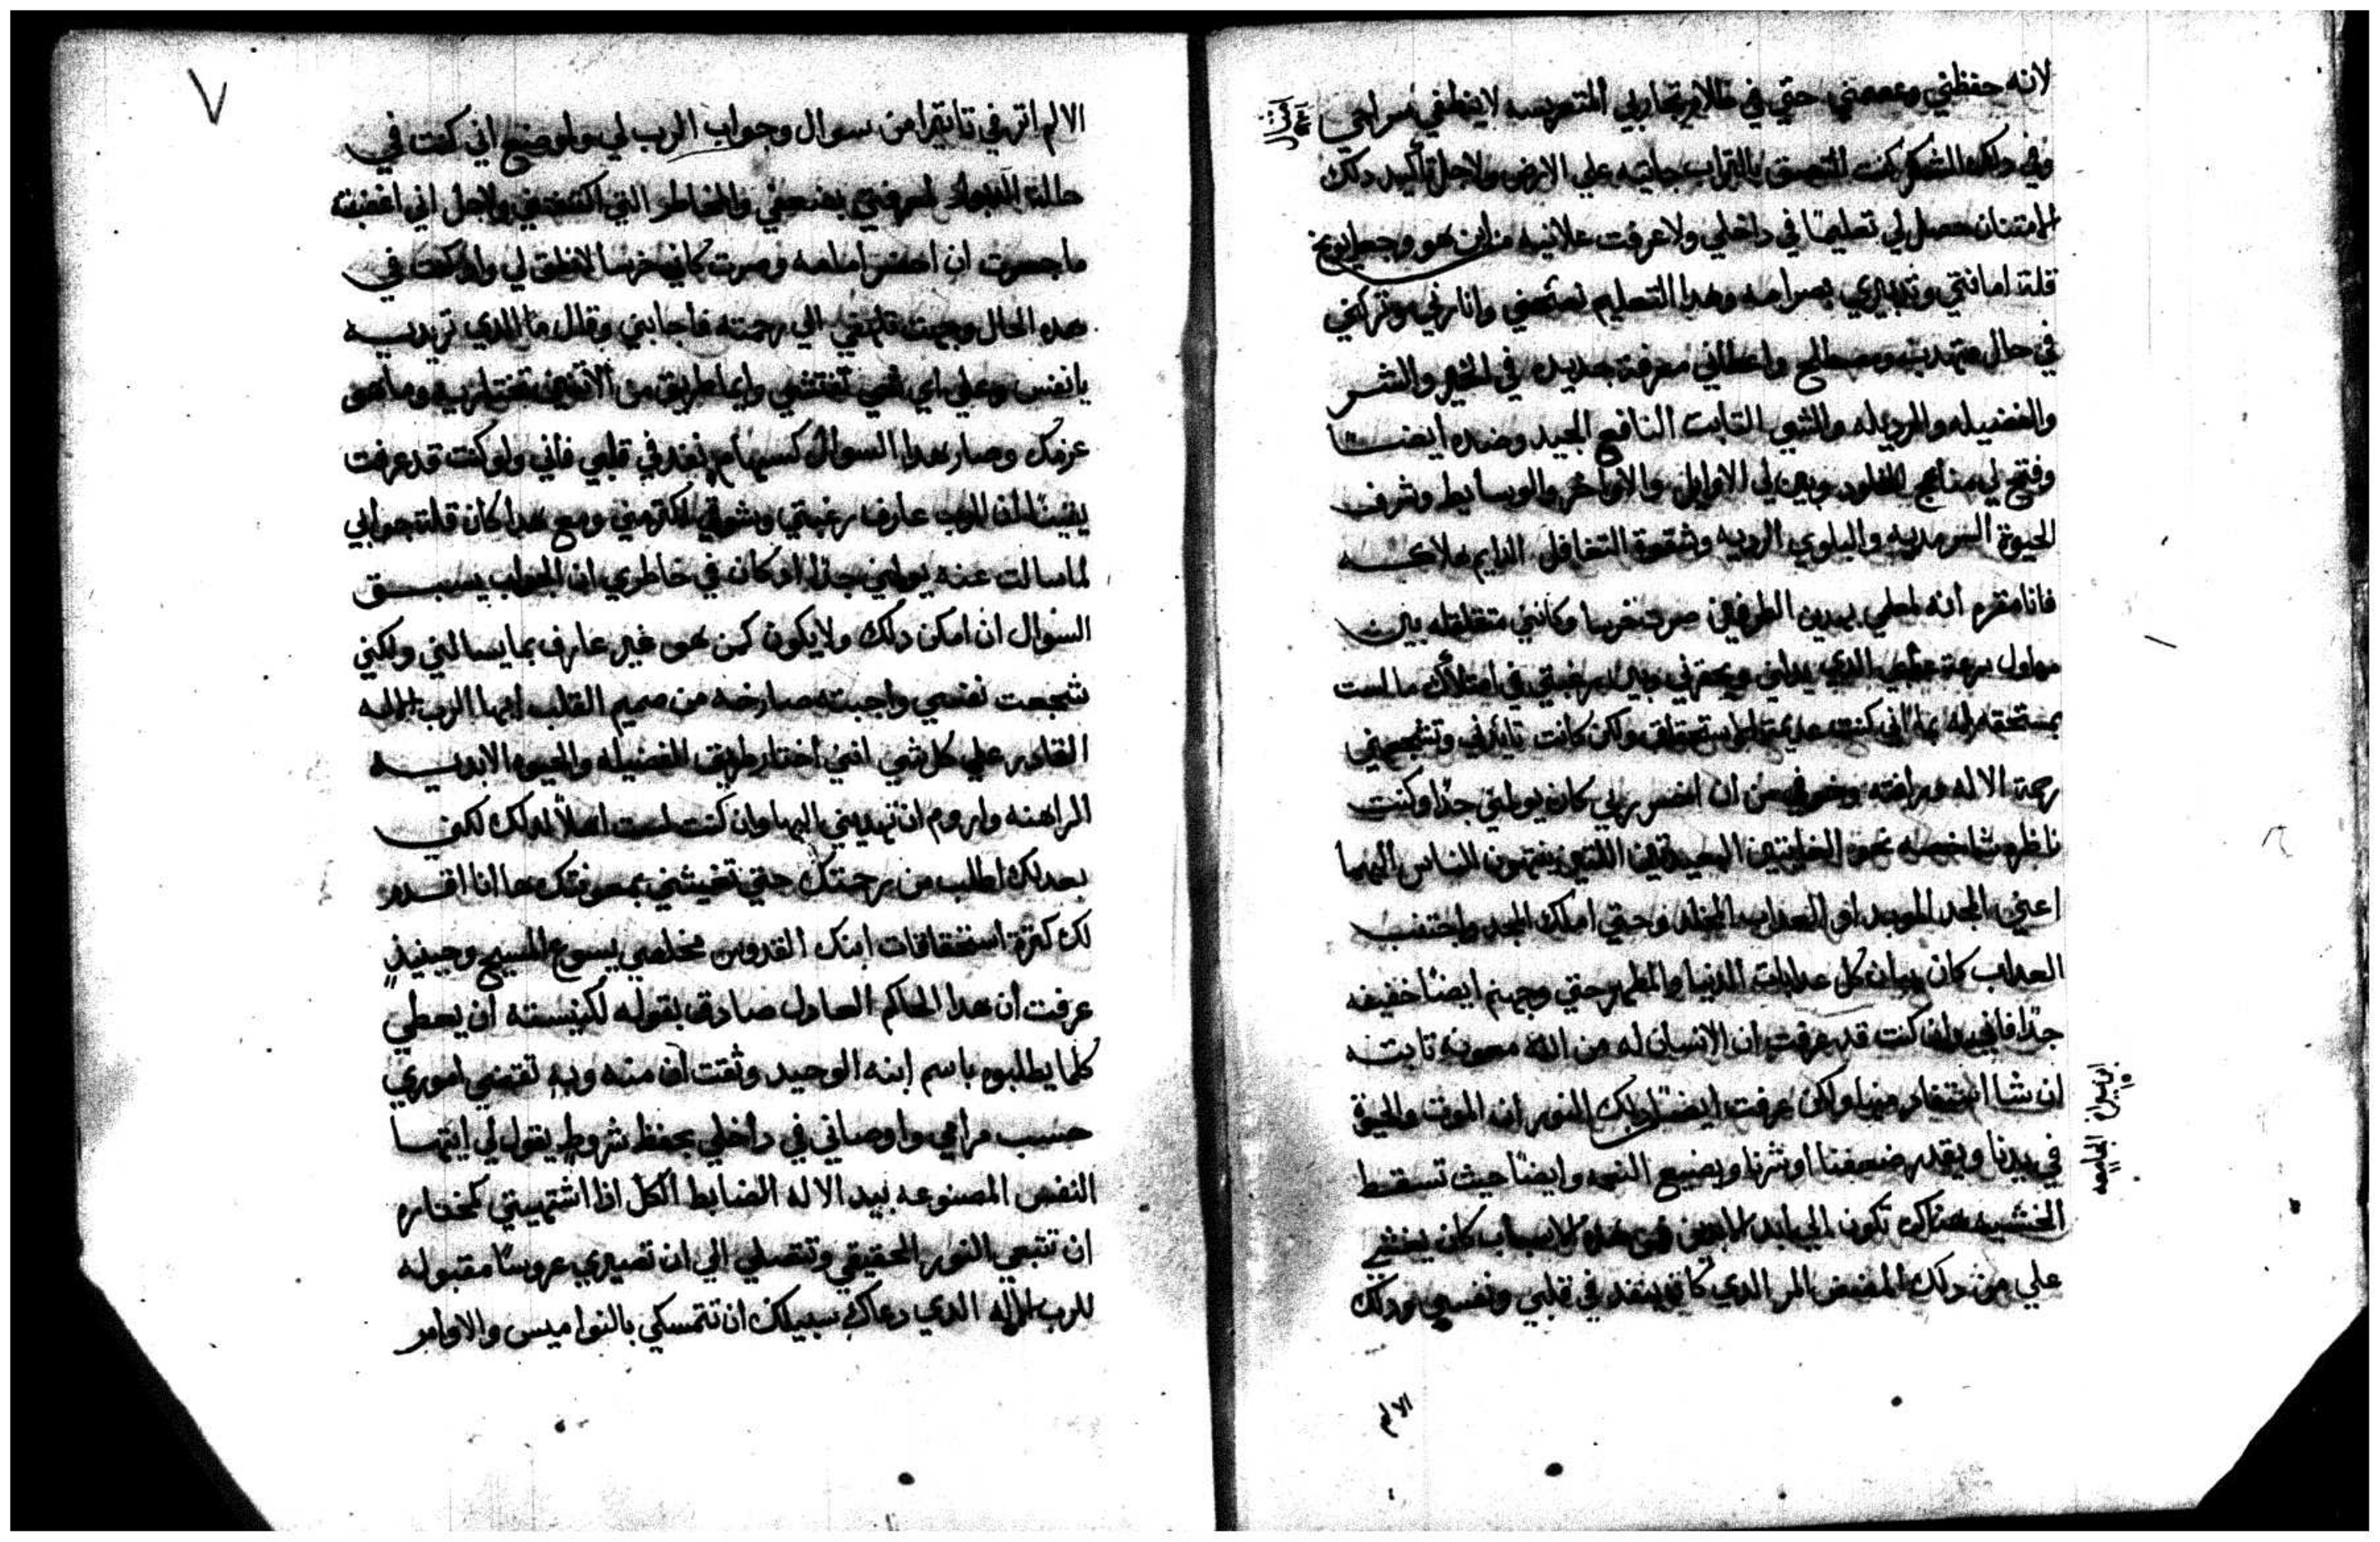 لانه حفظني وعصمني حتي في ظلام تجاربي المتعريسه لاينطفي سراجي
وفي دلك الشكر كنت التصق بالتراب جاتيه علي الارض ولاجل تأكيد دلك
الامتنان حصل لي تعليمًا في داخلي ولا عرفت علانيه من اين هو وجعل يوبخ
قلة امانتي وتدبيري بصرامه وهدا التعليم نصحني وانارني وتركني
في حال متهدب ومصطلح واعطاني معرفة جديده في الخير والشر
والفضيله والرديله والشي التابت النافع الجيد وضده ايضًا
وفتح لي مناهج الخلود وبين لي الاوايل والاواخر والوسايط وشرف
الحيوة السرمديه والبلوي الرديه وشقوة التغافل الدايم هلاكه
فانا مقره انه لعلمي بهدين الطرفين صرت خرسا وكانني متقلقله بين
رحمة الاله ورافته وخوفي من ان اخسر ربي كان يولمني جدًا وكنت
ناظره شاخصه نحو الغايتين البعيدتين اللتين ينتهون الناس اليهما
اعني المجد الموبد او العداب المخلد وحتي املك المجد واجتنب
العداب كان يبان كل عدابات الدنيا والمطهر حتي وجهنم ايضًا خفيفه
جدًا فاني وان كنت قد عرفت ان الانسان له من الله معونه تابته
ان شا استفاد منها ولكن عرفت ايضًا بدلك النور ان الموت والحيوة
في يدنا ويقدر ضعفنا او شرنا ويضيع النعمه وايضًا حيث تسقط
الخشبه هناك تكون الي ابد الابدين فمن هده الاسباب كان ينشي
علي من دلك المضض المر الدي كان ينفد في قلبي ونفسي ودلك
ابن سيراخ الجامعه
الالم
٧
الالم اتر في تاتيرًا من سوال وجواب الرب لي ولوضع اني كنت في
حالة لمعرفتي بضعفي والمخاطر التي اكتنفتني ولاجل اني اغضبته
ماجسرت ان احضر امامه وصرت كاني خرسا لانطق لي واد كنت في
هده الحال وجهت قلبي الي رحمته فاجابني وقال ما الدي تريديه
يانفس وعلي اي شي تفتشي وايما طريق من الاتنين تختاريه وما هو
عزمك وصار هدا السوال كسهام تنفد في قلبي فاني ولو كنت قد عرفت
يقينًا ان الرب عارف رغبتي وشوقي اكتر مني ومع هدا كان قلة جوابي
لما سالت عنه يولمني جدًا اد كان في خاطري ان الجواب يسبق
السوال ان امكن دلك ولايكون كمن هو غير عارف بما يسالني ولكني
شجعت نفسي واجبته صارخه من صميم القلب ايها الرب الاله
القادر علي كل شي انني اختار طريق الفضيله والحيوه الابديه
الراهنه واروم ان تهديني اليها وان كنت لست اهلاً لدلك لكن
بعدلك اطلب من رحمتك حتي تغيثني بمعرفتك ها انا اقدم
لك كترة استحقاقات ابنك القدوس مخلصي يسوع المسيح وحينيذٍ
عرفت ان هدا الحاكم العادل صادق بقوله لكنيسته ان يعطي
كلما يطلبوه باسم ابنه الوحيد وتقت ان منه وبه تقتضي اموري
حسب مرامي واوصاني في داخلي بحفظ شروط يقول لي ايتها
النفس المصنوعه بيد الاله الضابط الكل اذا اشتهيتي كمختاره
ان تتبعي النور الحقيقي وتتصلي الي ان تصيري عروسًا مقبوله
للرب الاله الدي دعاك سبيلك ان تتمسكي بالنواميس والاوامر